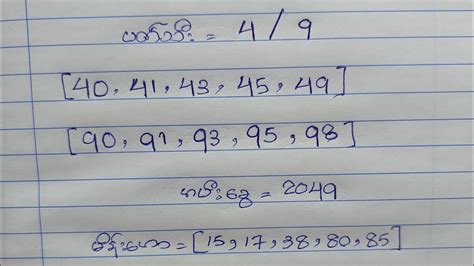 ပတ်သီး = 4 / 9
[40, 41, 43, 45, 49]
[90, 91, 93, 95, 98]
ဗမီးခွေ = 2049
စိန်းဟော = [15, 17, 38, 80, 85]